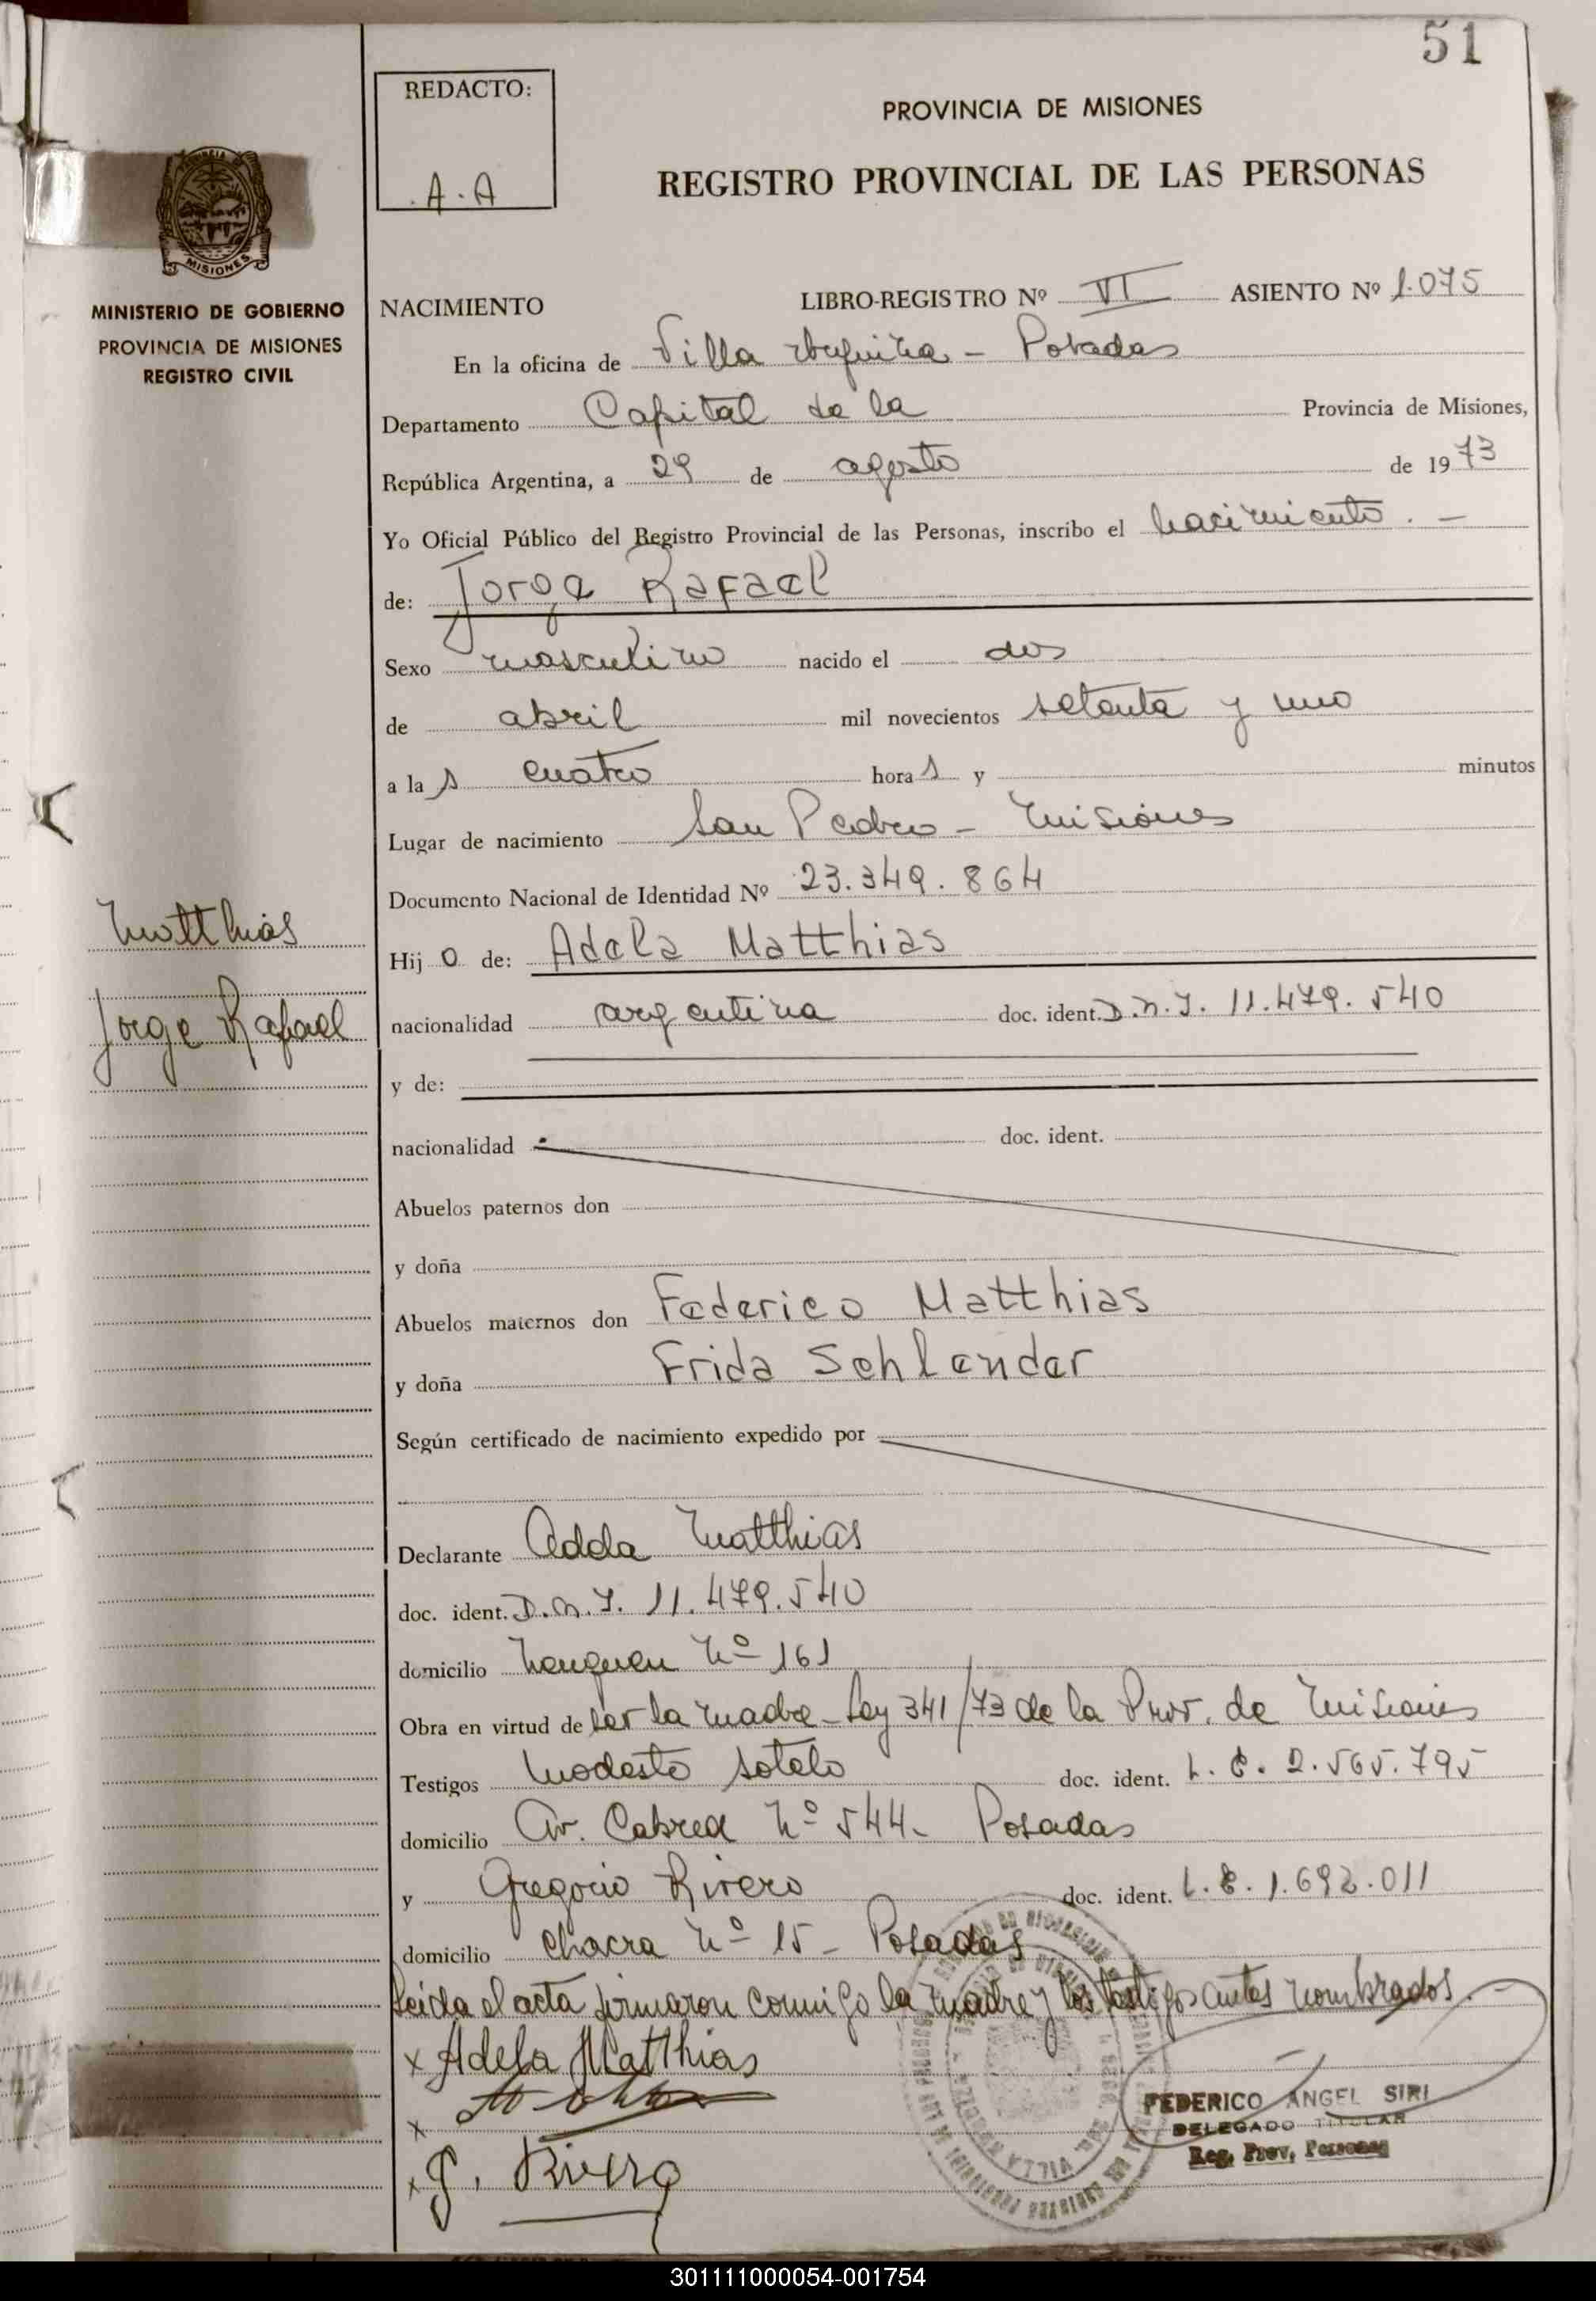 51
REDACTO:
A.A
PROVINCIA DE MISIONES
REGISTRO PROVINCIAL DE LAS PERSONAS
MISIONES
MINISTERIO DE GOBIERNO
PROVINCIA DE MISIONES
REGISTRO CIVIL
NACIMIENTO LIBRO-REGISTRO Nº VI ASIENTO Nº 1.075
En la oficina de Villa Urquiza - Posadas
Departamento Capital de la Provincia de Misiones,
República Argentina, a 29 de agosto de 1973
Yo Oficial Público del Registro Provincial de las Personas, inscribo el nacimiento. -
de: Jorge Rafael
Sexo masculino nacido el dos
de abril mil novecientos setenta y uno
a las cuatro horas y minutos
Lugar de nacimiento San Pedro - Misiones
Documento Nacional de Identidad Nº 23.349.864
Matthias
Jorge Rafael
Hijo de: Adela Matthias
nacionalidad argentina doc. ident. D.N.I. 11.479.540
y de:
nacionalidad doc. ident.
Abuelos paternos don
y doña
Abuelos maternos don Federico Matthias
y doña Frida Schlender
Según certificado de nacimiento expedido por
Declarante Adela Matthias
doc. ident. D.N.I. 11.479.540
domicilio Neuquen Nº 161
Obra en virtud de ser la madre - Ley 341/73 de la Prov. de Misiones
Testigos Modesto Sotelo doc. ident. L.E. 2.565.795
domicilio Av. Cabred Nº 544 - Posadas
y Gregorio Rivero doc. ident. L.E. 1.692.011
domicilio Chacra Nº 15 - Posadas
Leida el acta firmaron conmigo la madre y los testigos antes nombrados. -
x Adela Matthias
x
x G. Rivero
FEDERICO ANGEL SIRI
DELEGADO TITULAR
Reg. Prov. Personas
301111000054-001754